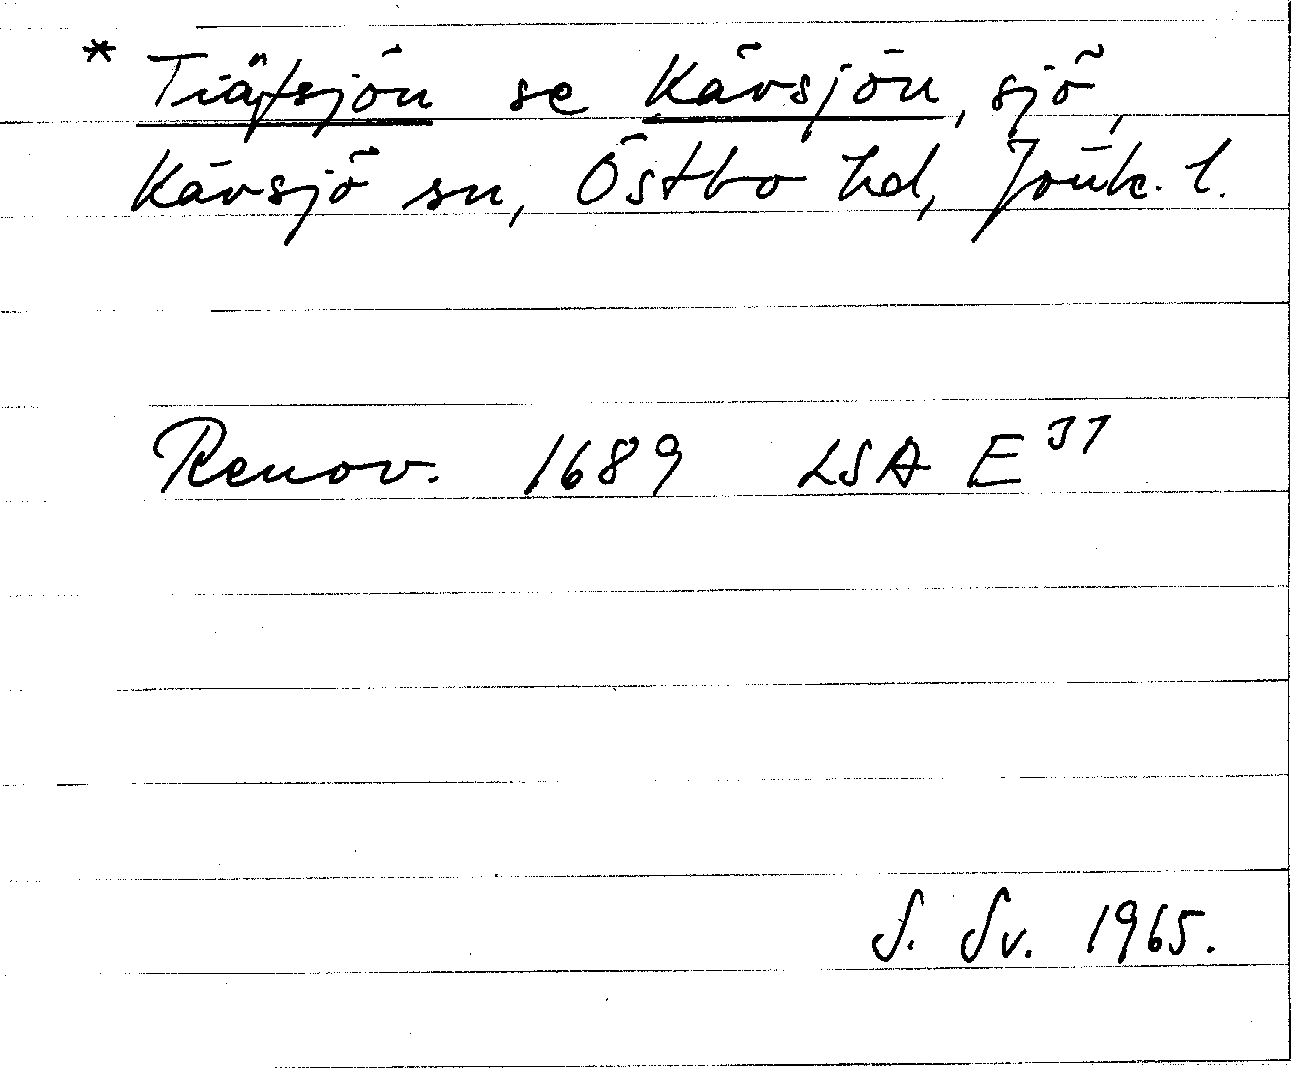 * Tiäfsjön se Kävsjön, sjö,
Kävsjö sn, Östbo hd, Jönk. l.
Renov. 1689 LSA E 37
S. Sv. 1965.